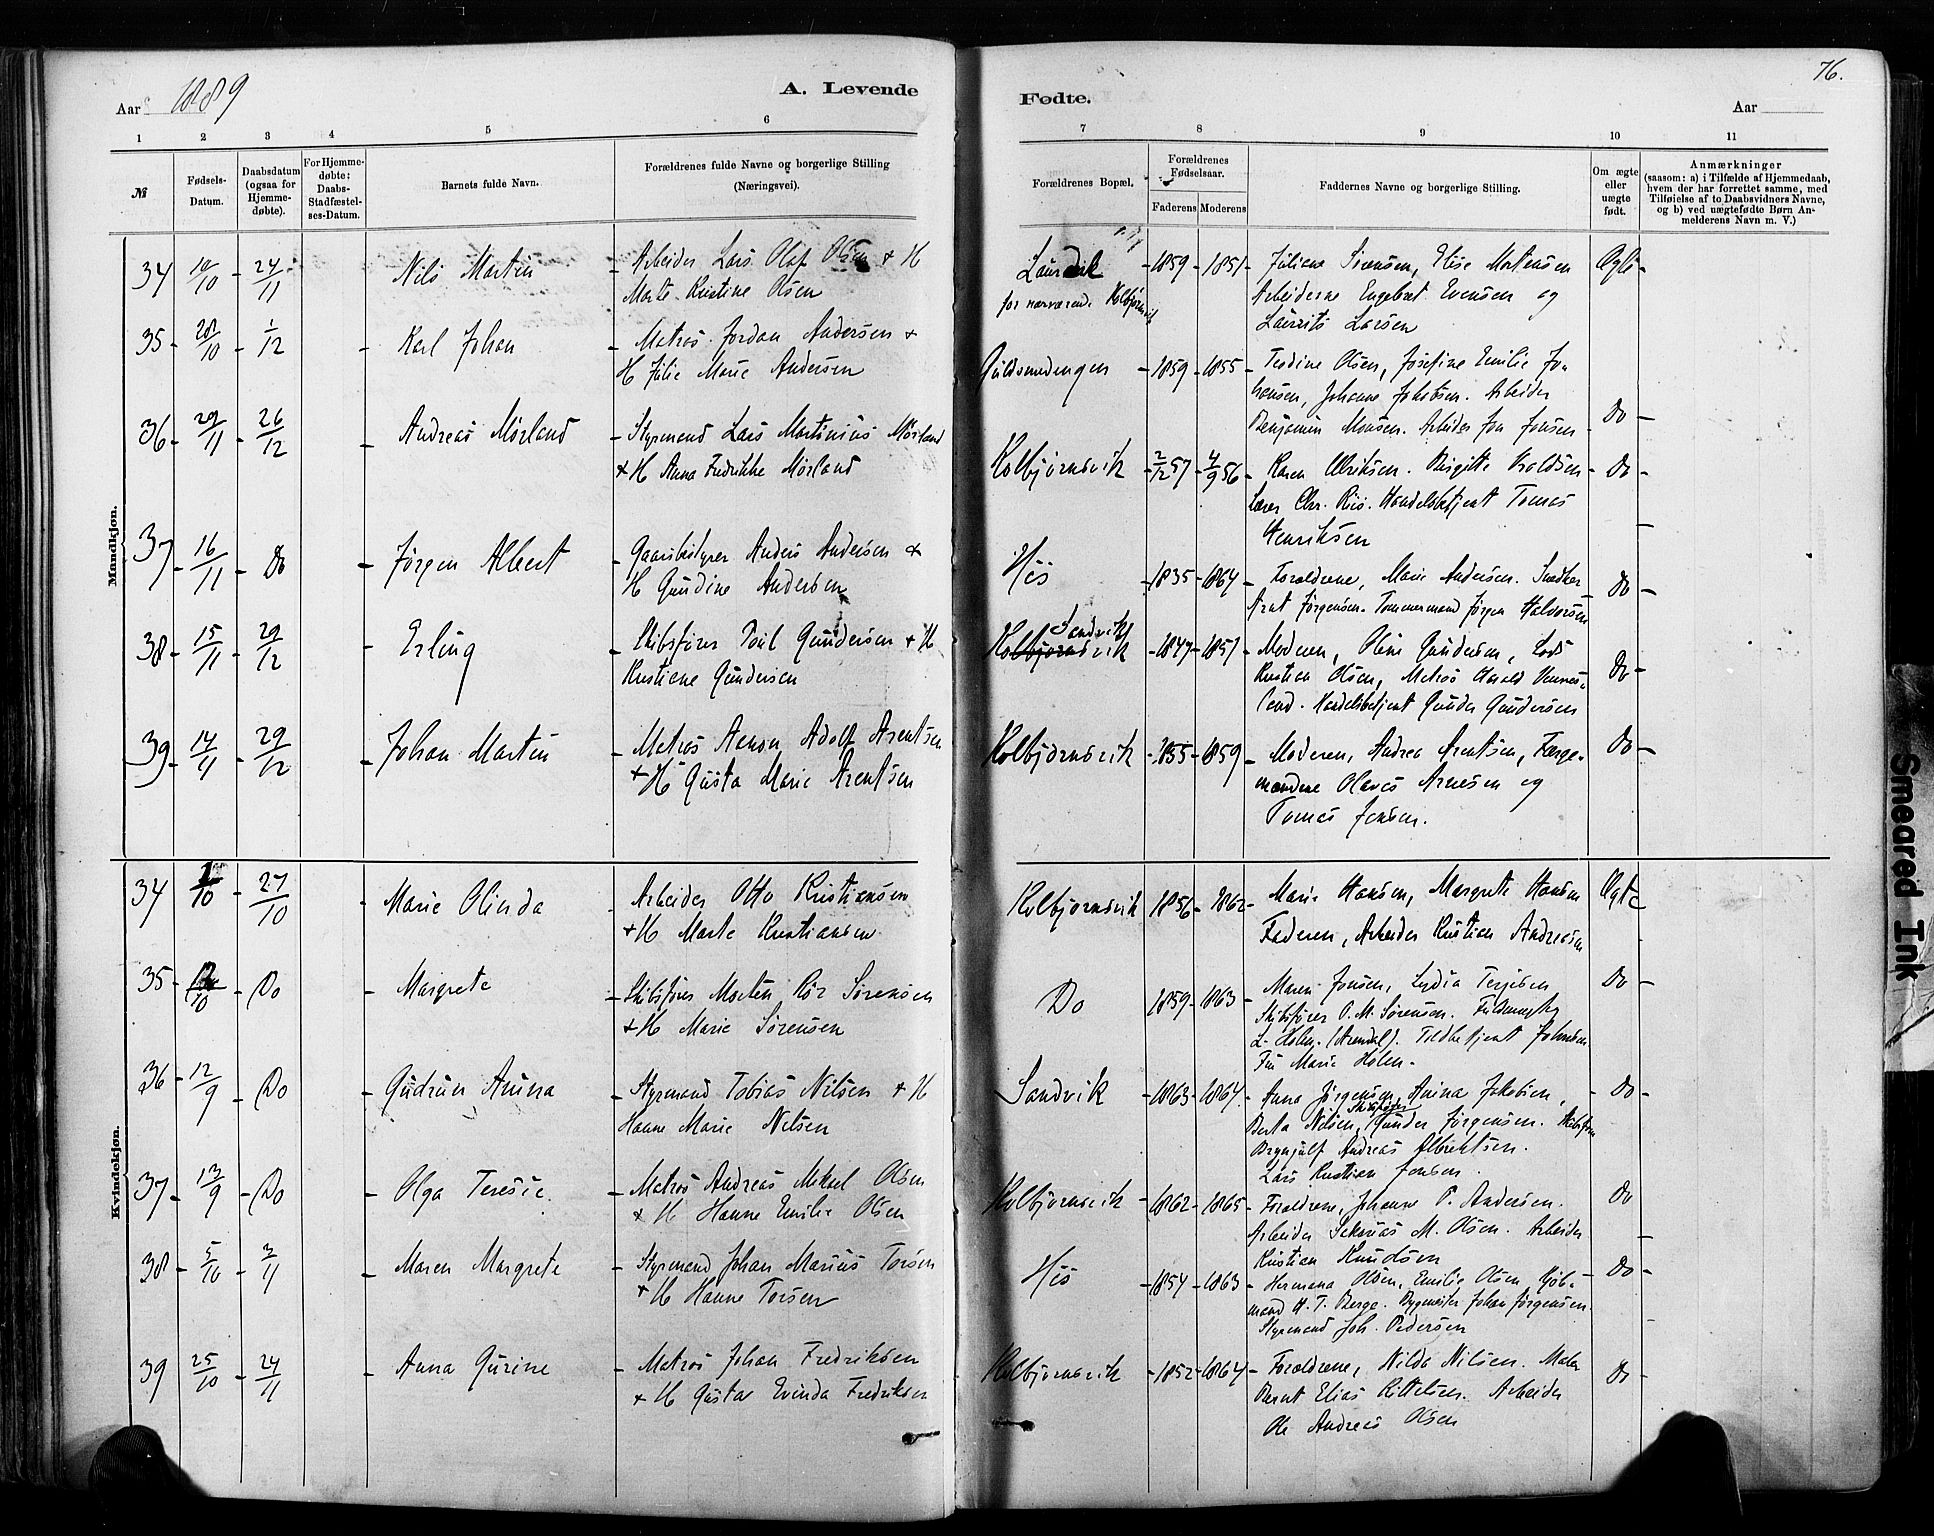 Aar 1889
A. Levende
1 2 3 4 5 6
№
Fødsels-Datum.
Daabsdatum (ogsaa for Hjemme-døbte).
For Hjemme-døbte: Daabs-Stadfæstel-ses-Datum.
Barnets fulde Navn.
Forældrenes fulde Navne og borgerlige Stilling (Næringsvei).
Mandkjøn.
34 10/10 - 24/11 Nils Martin - Arbeider Lars Olaf Olsen + H
Marte Kristine Olsen
35 - 28/10 - 1/12 - Karl Johan - Matros Jordan Andersen +
H Julie Marie Andersen
36 - 29/11 - 26/12 - Andreas Mørland - Styrmand Lars Martinius Mørland
+ H Anna Fredrikke Mørland
37 - 16/11 - Do - Jørgen Albert - Gaarsbestyrer Anders Andersen +
H Gundine Andersen
38 - 15/11 - 29/12 - Erling - Skibsfører Poul Gundersen + H
Kristiane Gundersen
39 - 14/11 - 29/12 - Johan Martin - Matros Aanon Adolf Arentsen
+ H Gusta Marie Arentsen
Kvindekjøn.
34 1/10 - 27/10 - Marie Olinda - Arbeider Otto Kristiansen
+ H Marte Kristiansen
35 - /10 - Do - Margrete - Skibsfører Morten Sørensen
+ H Marie Sørensen
36 - 12/9 - Do - Gudrun Anina - Styrmand Tobias Nilsen + H
Hanne Marie Nilsen
37 - 13/9 - Do - Olga Teresie. - Matros Andreas Mikael Olsen
+ H Hanne Emilie Olsen
38 - 5/10 - 3/11 - Maren Margrete - Styrmand Johan Marius Torsen
+ H Hanne Torsen
39 25/10 - 24/11 - Anna Gurine - Matros Johan Fredriksen
+ H Gustav Evinda Fredriksen
76.
Fødte.
Aar
7 8 9 10 11
Forældrenes Bopæl.
Forældrenes Fødselsaar.
Faderens Moderens
Faddernes Navne og borgerlige Stilling.
Om ægte eller uægte født.
Anmærkninger
(saasom: a) i Tilfælde af Hjemmedaab,
hvem der har forrettet samme, med
Tilføielse af to Daabsvidners Navne,
og b) ved uægtefødte Børn An-
melderens Navn m. V.)
Laurvik - 1859 - 1851 - Juliane Sørensen, Elise Mortensen Ægte -
for nærværend. Kolbjørnsvik Arbeiderne Engebret Evensen og
Laurits Larsen
Guldsmedengen - 1859 - 1855 - Tomine Olsen, Josefine Emilie Jo-
hansen, Johanne Jakobsen. Arbeider Do -
Benjamin Monsen. Arbeider Jon Jonsen
Kolbjørnsvik - 2/12 57 - 4/9 56 - Karen Ulriksen. Birgitte - Do -
Lærer Chr. Riis. Handelsbetjent Tomas
Henriksen
His - 1835 - 1864 - Forældrene, Marie Andersen. Snedker Do -
Arnt Jørgensen. Tømmermand Jørgen Halvorsen
Sandvik
Kolbjørnsvik - 1847 - 1851 - Moderen, Oline Gundersen, Lods
Kristian Olsen, Matros Harald Vennes- Do -
land. Handelsbetjent Gunder Gundersen
Kolbjørnsvik - 1855 - 1859 - Moderen, Andrea Arentsen, Færge- Do -
mændene Olaves Arnesen og
Tomas Jensen.
Kolbjørnsvik 1856 - 1862 - Marie Hansen, Margrete Hansen Ægte
Faderen, Arbeider Kristian Andreasen
Do 1859 - 1863 - Maren Jensen, Lydia Terjesen Do -
Skibsfører O. M. Sørensen. Fuldmægtig
L. Holm. (Arendal). Toldbetjent Johnsen
Fru Marie Holm -
Sandvik - 1863 - 1864. - Anna Jørgensen, Anina Jakobsen, - Do -
Berta Nilsen, Skibsfører Gunder Jørgensen. Skibsfører
Brynjulf Andreas Albrektsen.
Lars Kristian Jensen.
Kolbjørnsvik - 1862 - 1865 - Forældrene, Johanne P. Andersen. Do
Arbeider Sakarias M. Olsen. Arbeider
Kristian Knudsen
His - 1854 - 1863 - Hermana Olsen, Emilie Olsen, Kjøb- Do -
mand H. T. Berge. Bygmester Johan Jørgensen.
Styrmand Joh. Pedersen
Kolbjørnsvik - 1852 - 1864 - Forældrene, Nilda Nilsen. Maler Do -
Bernt Elias Kittelsen. Arbeider
Ole Andreas Olsen
Smeared Ink